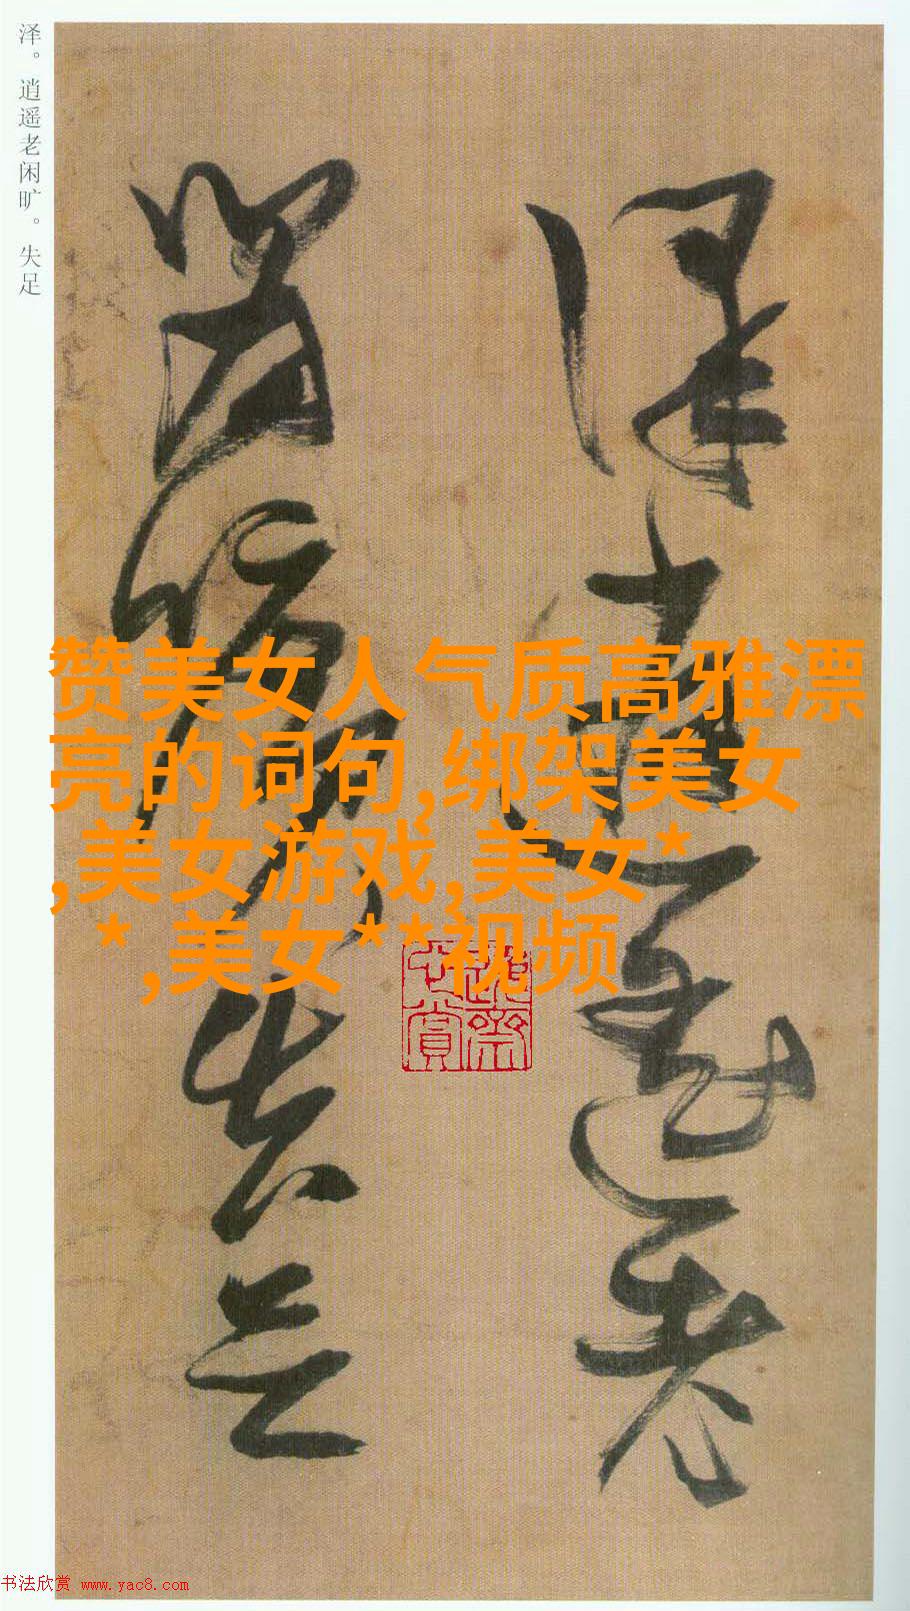 泽。逍遥老闲旷。失足
泽逍遥老
闲旷失足
赞美女人气质高雅漂
亮的词句,绑架美女
,美女游戏,美女*
*,美女**视频
书法欣赏 www.yac8.com